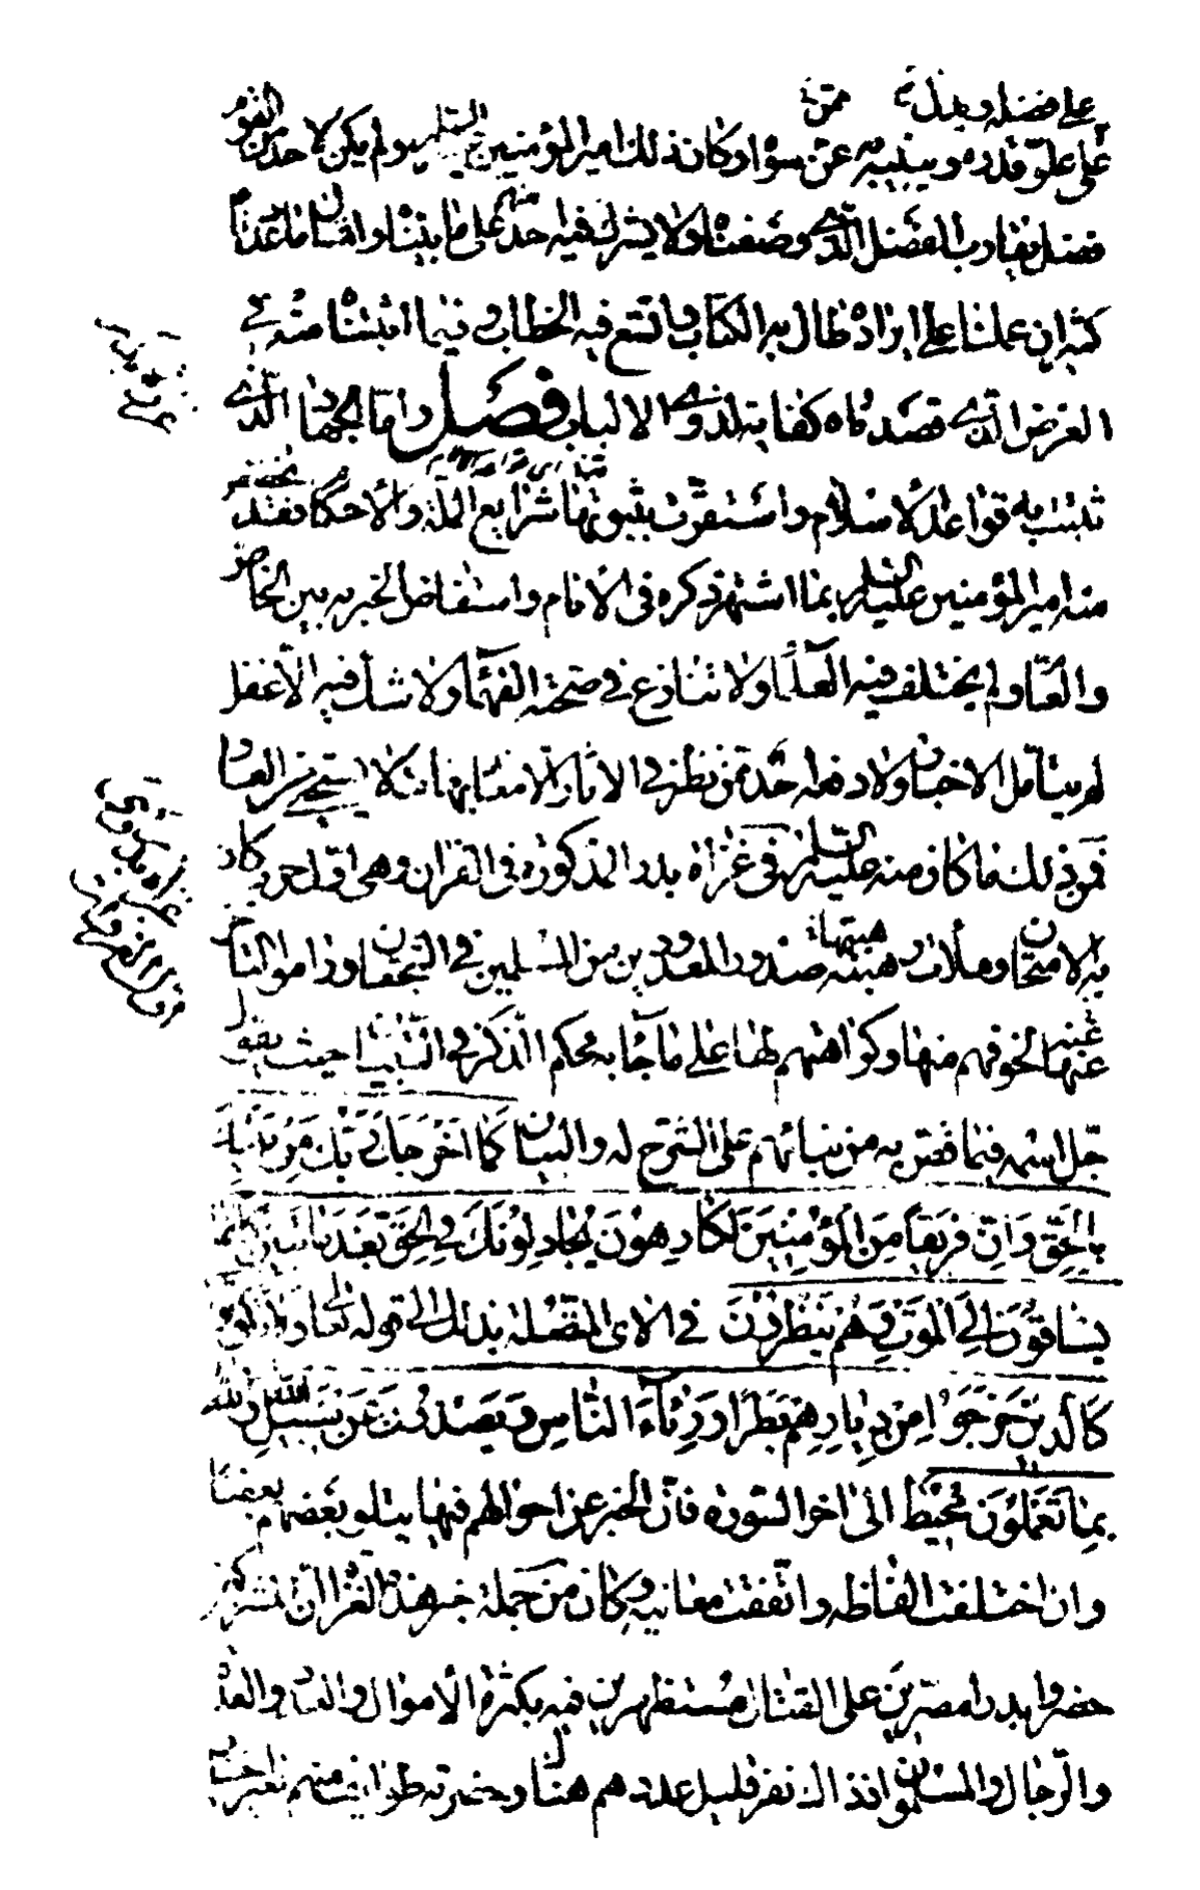 على فضله ويدل
ممن
على علو قدره وينبيه عن سواه وكان ذلك امير المؤمنين عليه السلم ولم يكن لاحد من القوم
فضل يقارب الفضل الذي وصفناه ولا يشركه فيه احد منهم على ما بيناه وان كان ما عددناه
كثير ان عملنا على ايراده طال به الكتاب واتسع فيه الخطاب وفيما اثبتناه منه في
الغرض الذي قصدناه كفاية لذوي الالباب فصل واما الجهاد الذي
ثبتت به قواعد الاسلام واستقرت بثبوتها شرايع الملة والاحكام فقد تخصص
منه امير المؤمنين عليه السلم بما اشتهر ذكره في الانام واستفاض الخبر به بين الخاص
والعام ولم يختلف فيه العلماء ولا تنازع في صحته الفهماء ولا شك فيه الا غفل
لم يتأمل الاخبار ولا دفعه احد ممن نظر في الاثار الا معاند بهات لا يستحيي من العار
فمن ذلك ما كان منه عليه السلم في غزاة بدر المذكورة في القران وهي اول حرب كان
به الامتحان وملأت رهبته صدور المعدودين من المسلمين في الشجعان وراموا التأخر
عنها لخوفهم منها وكراهتهم لها على ما جاء به محكم الذكر في التبيان حيث يقول
جل اسمه فيما قص به من نبائهم على الشرح له والبيان كَمَا اَخْرَجَكَ رَبُّكَ مِنْ بَيْتِكَ
بِالْحَقِّ وَاِنَّ فَرِيقاً مِنَ الْمُؤْمِنِينَ لَكَارِهُونَ يُجَادِلُونَكَ فِي الْحَقِّ بَعْدَ مَا تَبَيَّنَ كَاَنَّمَا
يُسَاقُونَ اِلَى الْمَوْتِ وَهُمْ يَنْظُرُونَ في الاى المتصلة بذلك الى قوله تعالى وَلَا تَكُونُوا
كَالَّذِينَ خَرَجُوا مِنْ دِيَارِهِمْ بَطَراً وَرِئَاءَ النَّاسِ وَيَصُدُّونَ عَنْ سَبِيلِ اللهِ وَاللهُ
بِمَا تَعْمَلُونَ مُحِيطٌ الى اخر السورة فان الخبر عن احوالهم فيها يتلو بعضه بعضا
وان اختلفت الفاظه واتفقت معانيه وكان من جملة خبر هذه الغزاة ان المشركين
حضروا بدرا مصرين على القتال مستظهرين فيه بكثرة الاموال والعدد والعدة
والرجال والمسلمون اذ ذاك نفر قليل عددهم هناك وحضرته طوايف منهم بغير اختيار